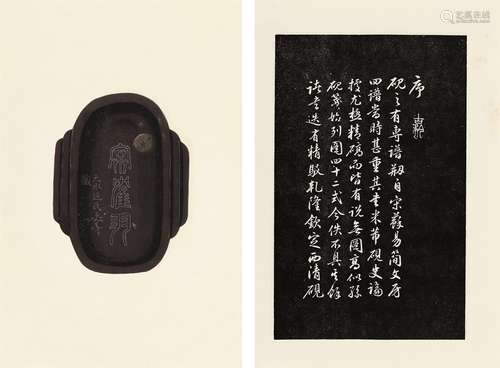 序
硯之有專譜刱自宋蘇易簡文房
四譜當時甚重其書米芾硯史論
授尤極精确而皆有說無圖高似孫
硯箋始列圖四十二式今佚不具其餘
諸書迭有精駁乾隆欽定西清硯
艺狐在线